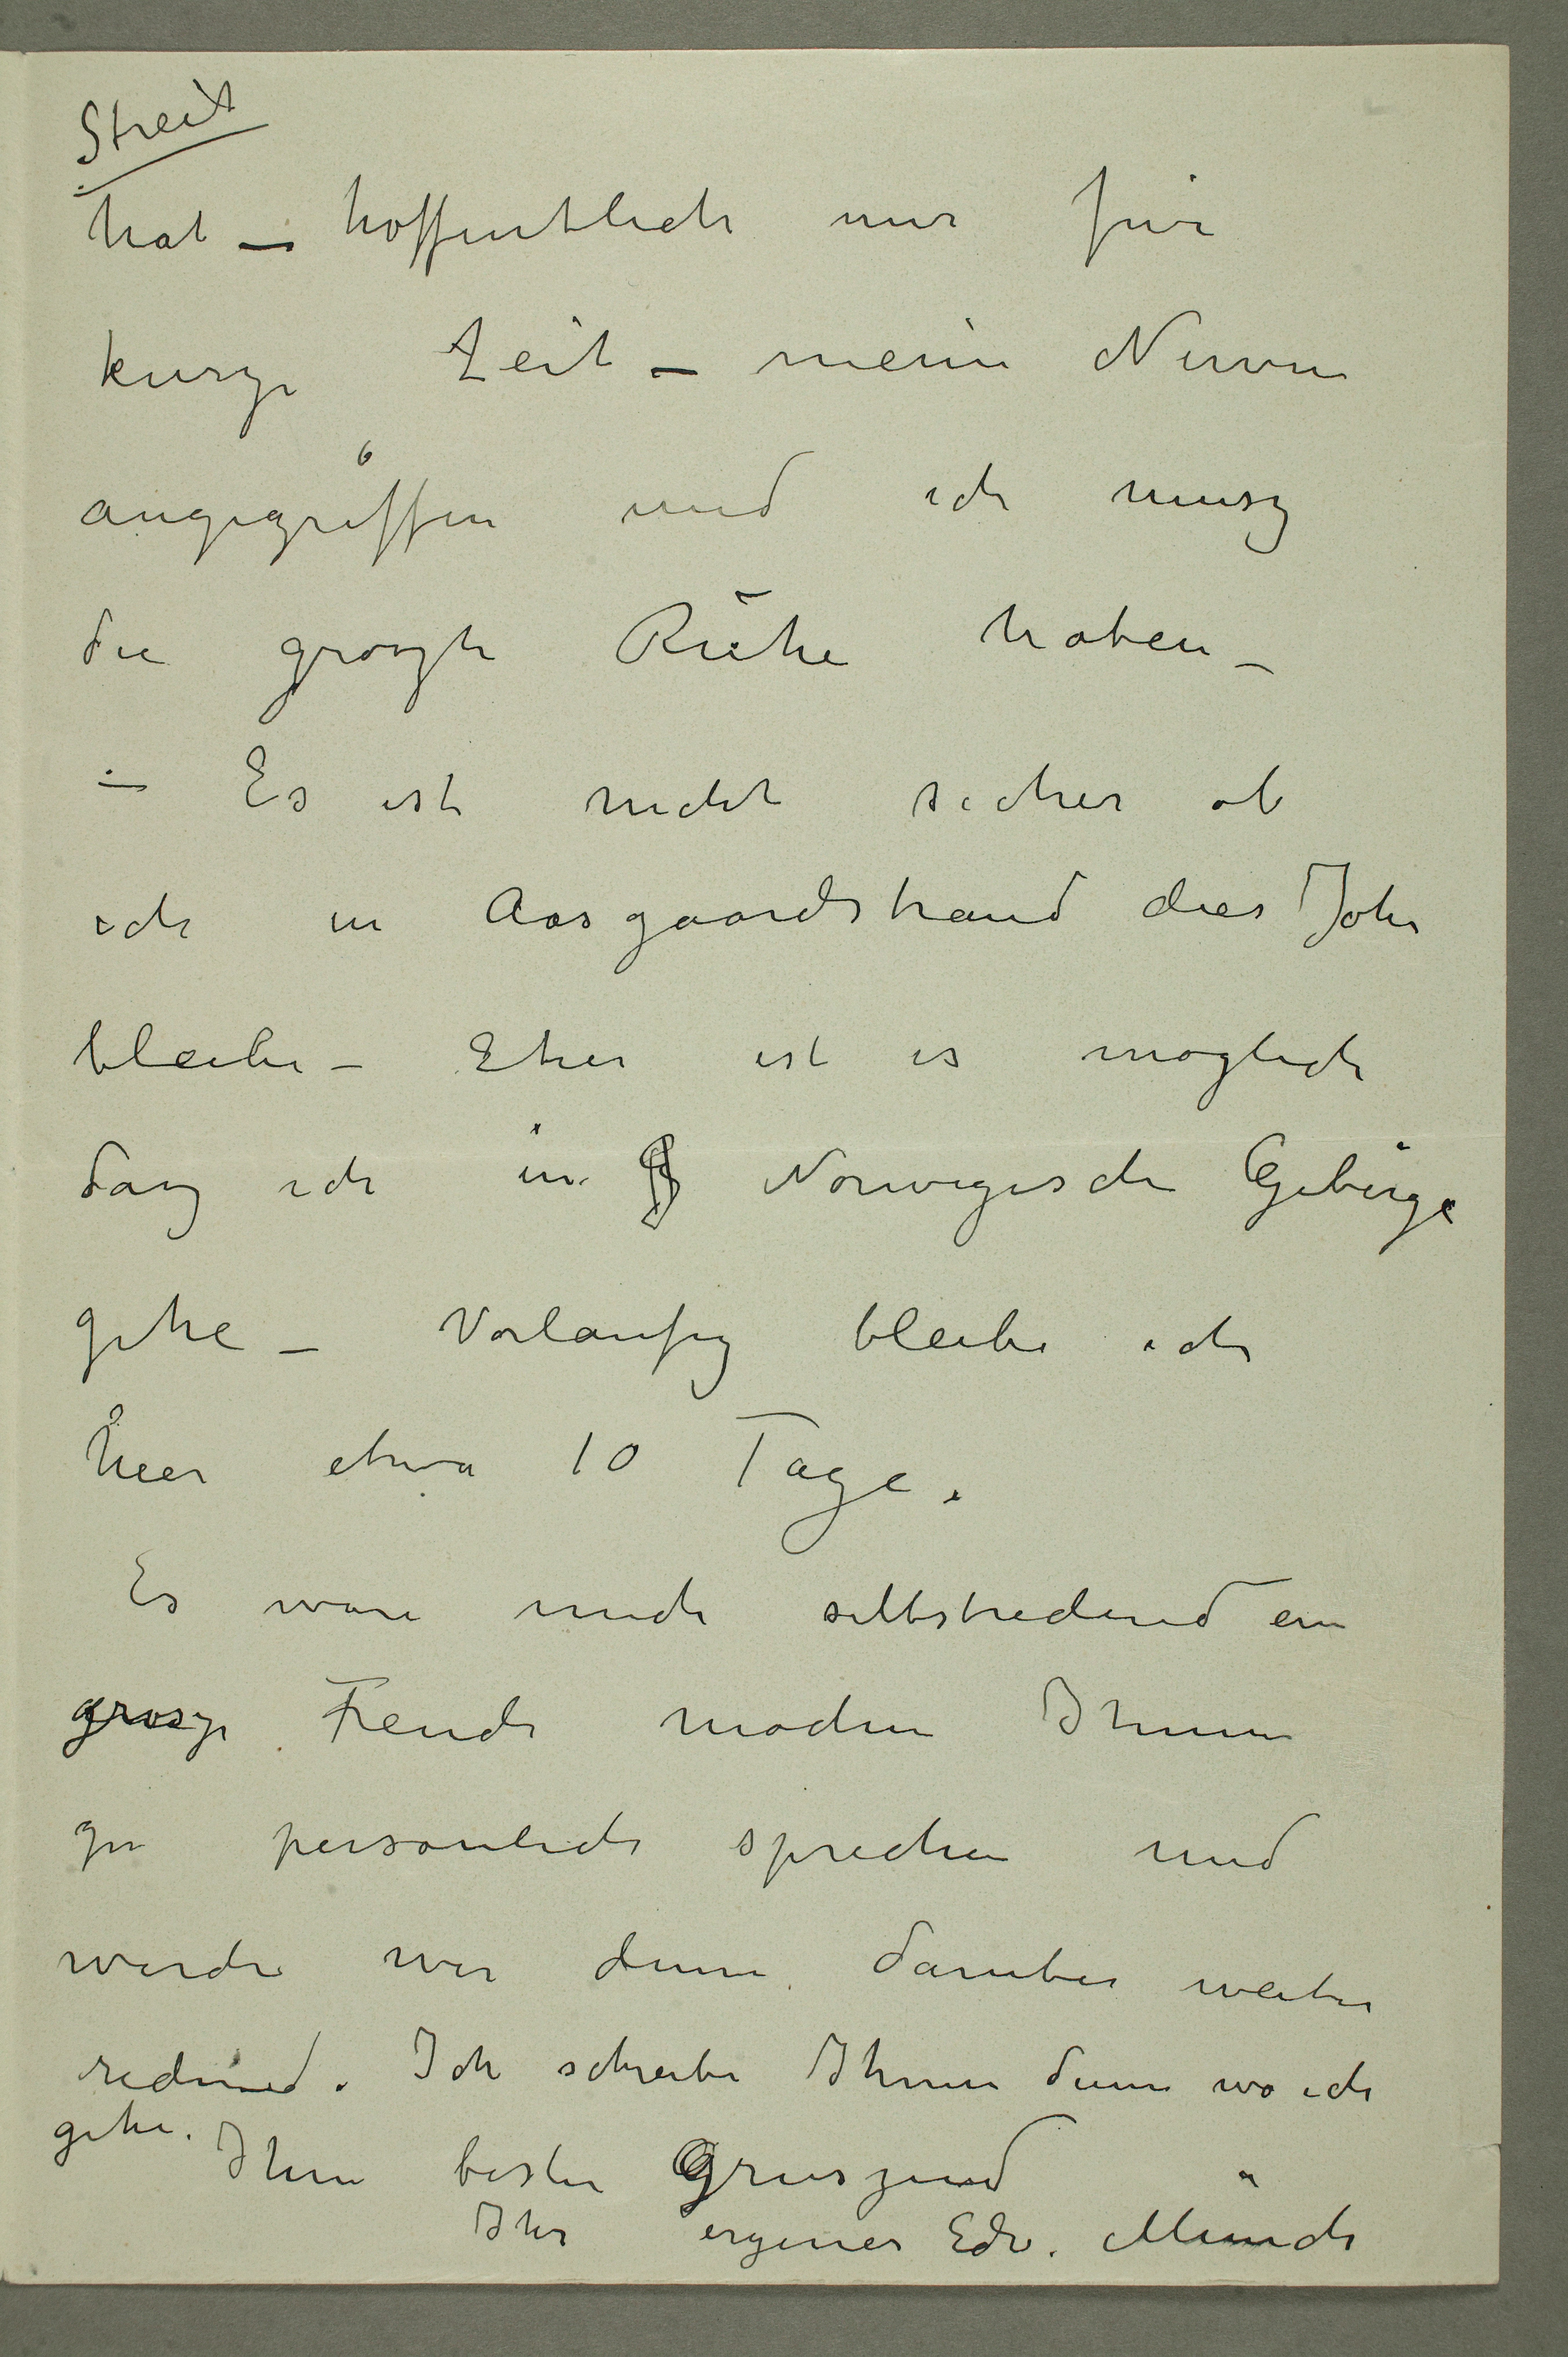 Streit
hat – hoffentlich nur für
kurze Zeit – meine Nerven
angegriffen und ich musz
die groszte Ruhe haben –
– Es ist nicht sicher ob
ich in Aasgaardstrand dies Jahr
bleibe – Eher ist es moglich
dasz ich in Norwegische Gebirge
gehe – Vorlaufig bleibe ich
hier etwa 10 Tage.
Es ware mich selbstredend ein
grosze Freude mochen Ihnen
zu personlich sprechen und
werde wir denn daruber weiter
redend. Ich schreibe Ihnen denn wo ich
gehe.
Ihnen besten Gruszend
Ihr ergener Edv. Munch